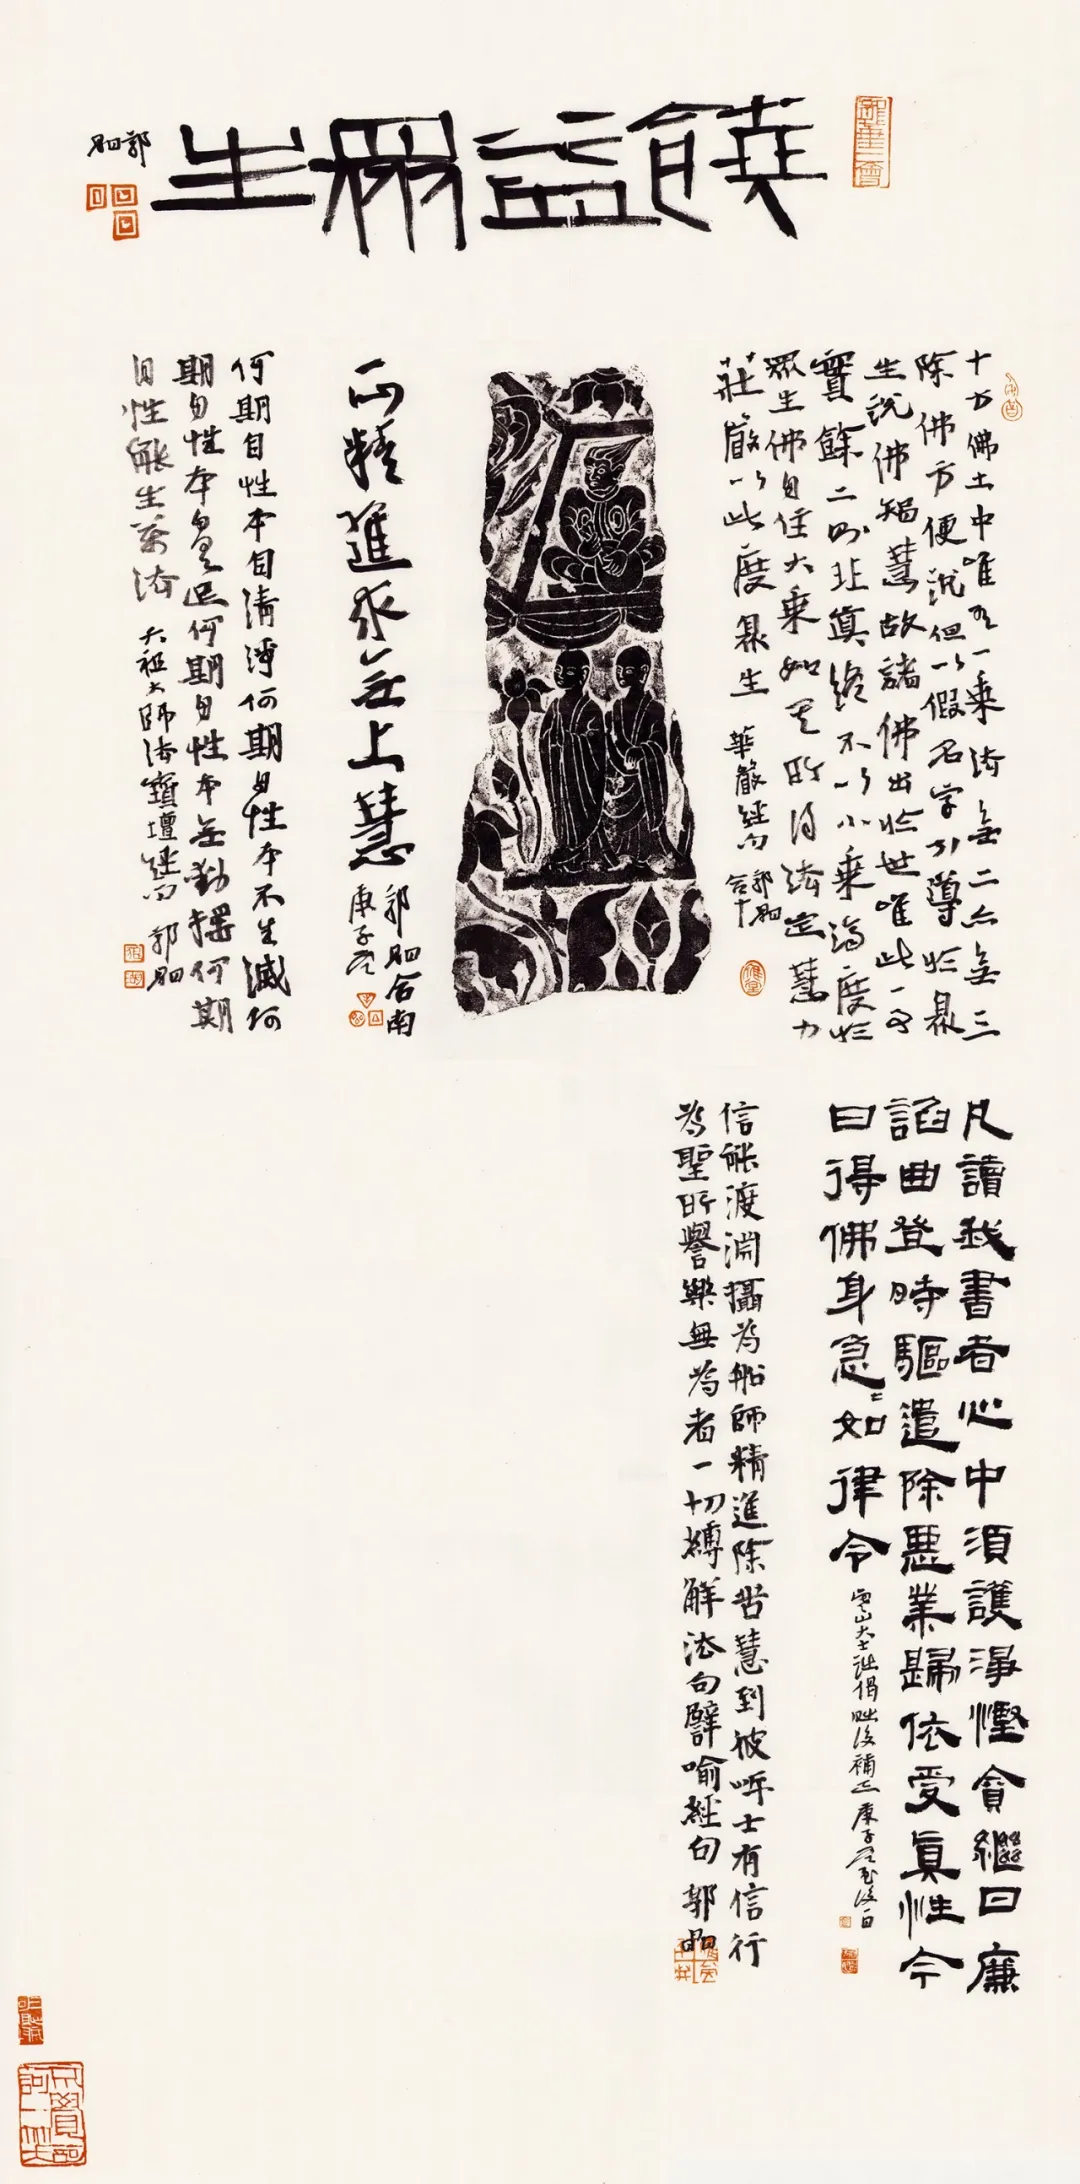 饒益眾生
郭
十方佛土中唯有一乘法無二亦無三
除佛方便說但以假名字引導於眾
生說佛智慧故諸佛出於世唯此一事
實餘二則非真終不以小乘濟度於
眾生佛自住大乘如其所得法定慧力
莊嚴以此度眾生 華嚴經句 郭
合十
一心精進求無上慧 郭 合南
庚子
何期自性本自清淨何期自性本不生滅何
期自性本自具足何期自性本無動搖何期
自性能生萬法 六祖大師法寶壇經句 郭
凡讀我書者心中須護淨慳貪繼日廉
諂曲登時驅遣除惡業歸依受真性今
日得佛身急〻如律令
信能渡淵攝為船師精進除苦慧到彼岸士有信行
為聖所譽樂無為者一切縛解法句譬喻經句 郭